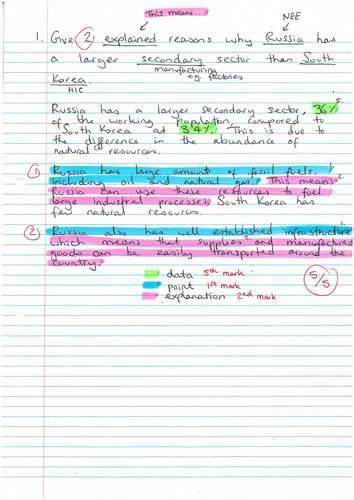 This means...
NEE
1. Give 2 explained reasons why Russia has
a larger secondary sector than South
manufacturing
e.g. factories
Korea.
HIC
Russia has a larger secondary sector, 36% 5.
of the working population, compared to
South Korea at 34%. This is due to
the difference in the abundance of
natural resources.
① Russia has large amount of fossil fuels, 1
including oil and natural gas. This means 2.
Russia can use these resources to fuel
large industrial processes, South Korea has
few natural resources.
② Russia also has well established infrastructure 1.
which means that supplies 2. and manufactured
goods can be easily transported around the
country.
data 5th mark
point 1st mark
explanation 2nd mark
5/5